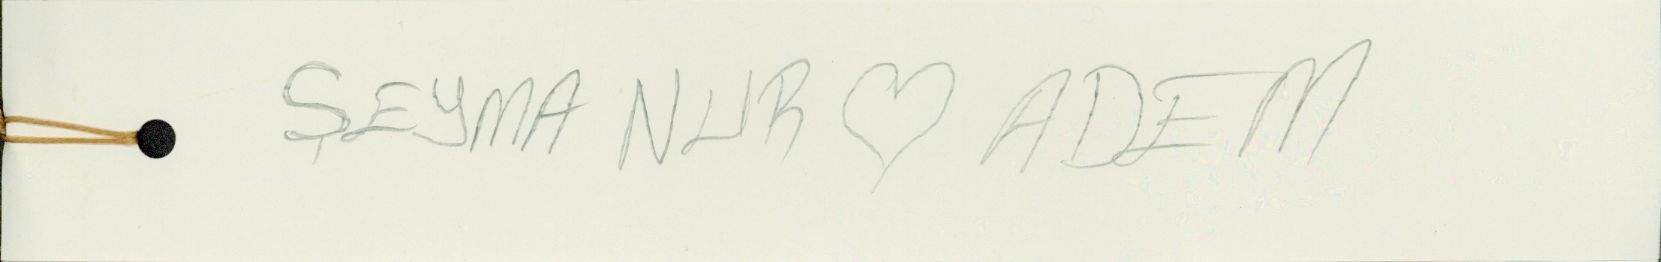 ŞEYMA NUR ♡ ADEM